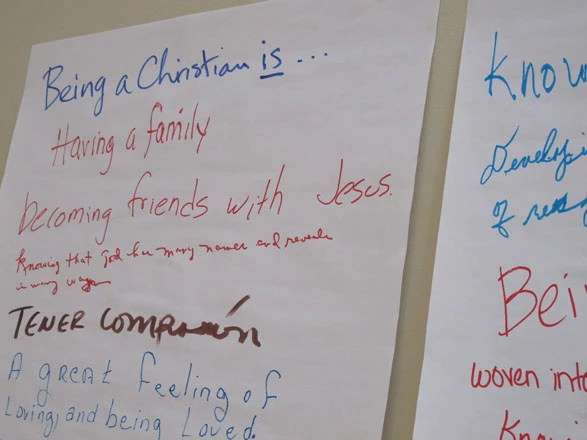 Being a Christian is ...
Having a family
becoming friends with Jesus.
Knowing that God has many names and reveals
in many ways
TENER COMPASIÓN
A great feeling of
Loving, and being Loved.
Know
Developi
of
Bei
woven into
Knowi